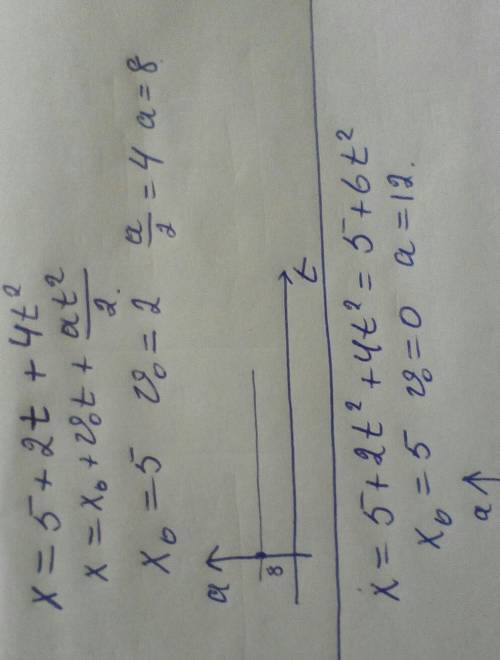 x = 5 + 2t + 4t²
x = x₀ + v₀t + at²/2.
x₀ = 5 v₀ = 2 a/2 = 4 a = 8.
a
8
t
x = 5 + 2t² + 4t² = 5 + 6t²
x₀ = 5 v₀ = 0 a = 12.
a